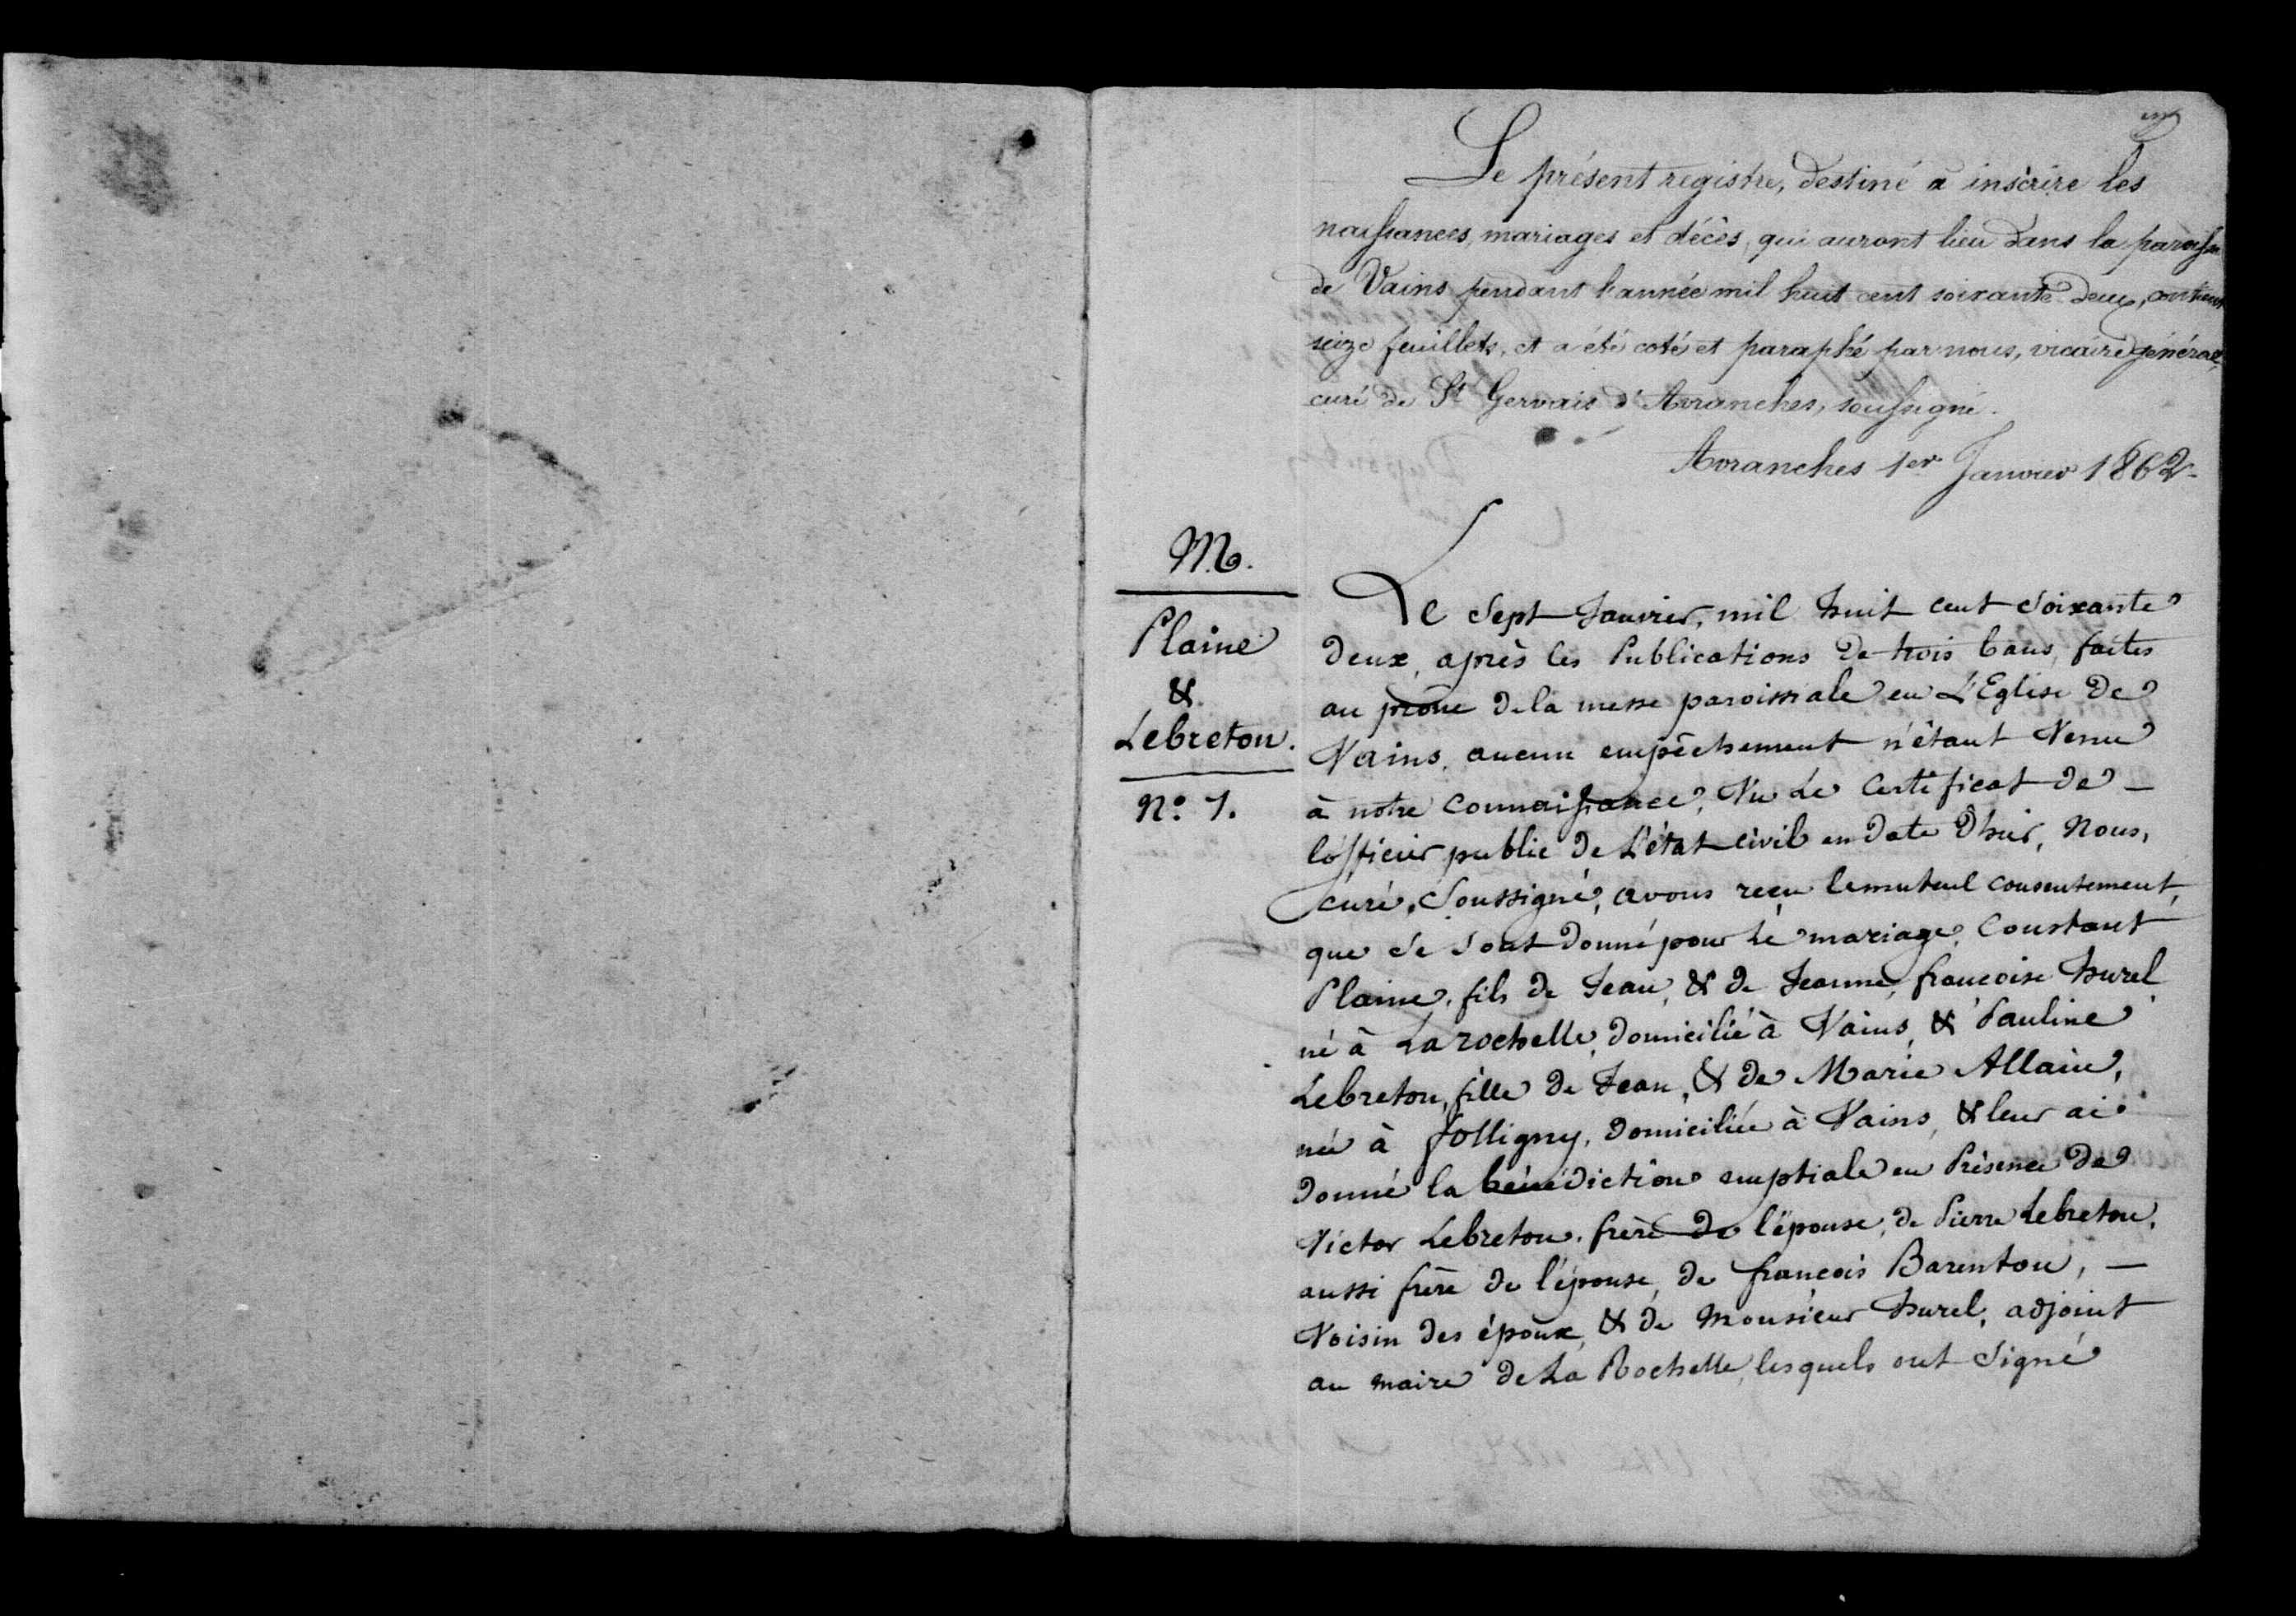 Le présent registre, destiné a inscrire les
naissances, mariages et décès, qui auront lieu dans la paroisse
de Vains pendant l'année mil huit cent soixante deux, contient
seize feuillets, et a été coté et paraphé par nous, vicaire général,
curé de St Gervais d'Avranches, soussigné.
Avranches 1er Janvier 1862
M.
Plaine
&
Lebreton.
No. 1.
Le Sept Janvier, mil huit cent Soixante
deux, après les Publications de trois bans, faites
au prône de la messe paroissiale en L'Eglise de
Vains, aucun empêchement n'étant Venu
à notre connaissance, Vu Le Certificat de -
l'officier public de L'état civil en date d'hier, Nous,
curé, Soussigné, avons reçu le mutuel consentement,
que Se Sont donné pour le mariage, Constant
Plaine, fils de Jean, & de Jeanne, françoise hurel
né à La rochelle, domicilié à Vains, & Pauline
Lebreton, fille de Jean, & de Marie Allain,
née à folligny, domiciliée à Vains, & leur ai
donné la bénédiction nuptiale en Présence de
Victor Lebreton, frère de l'épouse, de Pierre Lebreton,
aussi frère de l'épouse, de françois Barenton, -
Voisin des époux, & de Monsieur hurel, adjoint
au maire de La Rochelle, lesquels ont Signé